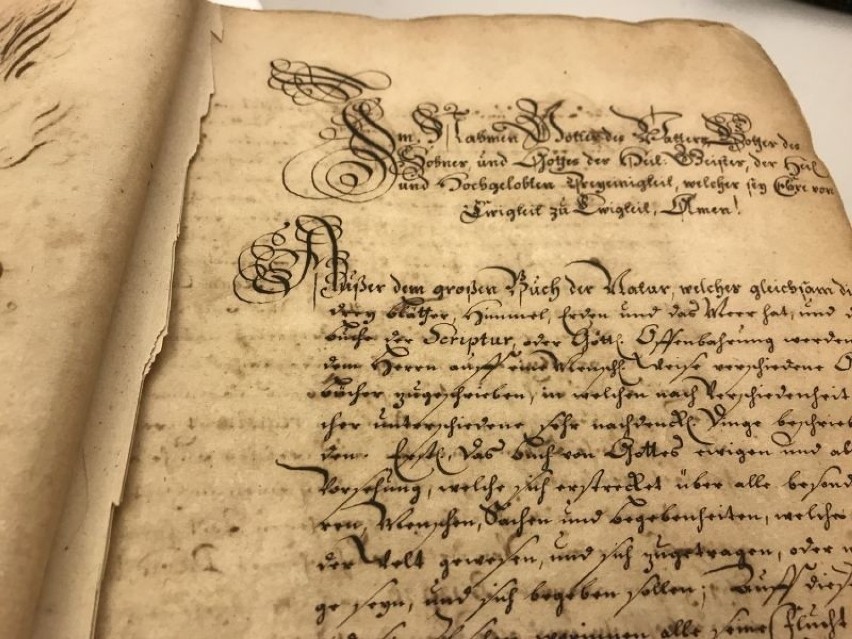 Im Nahmen Gottes des Vatters, Gottes des
Sohnes, und Gottes des Heil: Geistes, der Heil
und Hochgelobten Dreyeinigkeit, welcher sey Ehre von
Ewigkeit zu Ewigkeit, Amen!
Außer dem großen Buch der Natur, welches gleichsam
drey blätter, Himmel, Erden und das Meer hat, und
buche der Scriptur, oder Göttl. Offenbahrung werden
dem Herrn auff eine Menschl. Weise verschiedene
bücher zugeschrieben, in welchen nach Verschiedenheit
cher unterschiedene sehr nachdenckl. Dinge beschrieb
den. Erstl. das buch von Gottes ewigen und al
Vorsehung, welche sich erstrecket über alle besond
ren, Menschen, Sachen und begebenheiten, welche
der Welt gewesen, und sich zugetragen, oder
ge seyn, und sich begeben sollen; Auff diese
alle seine Flucht